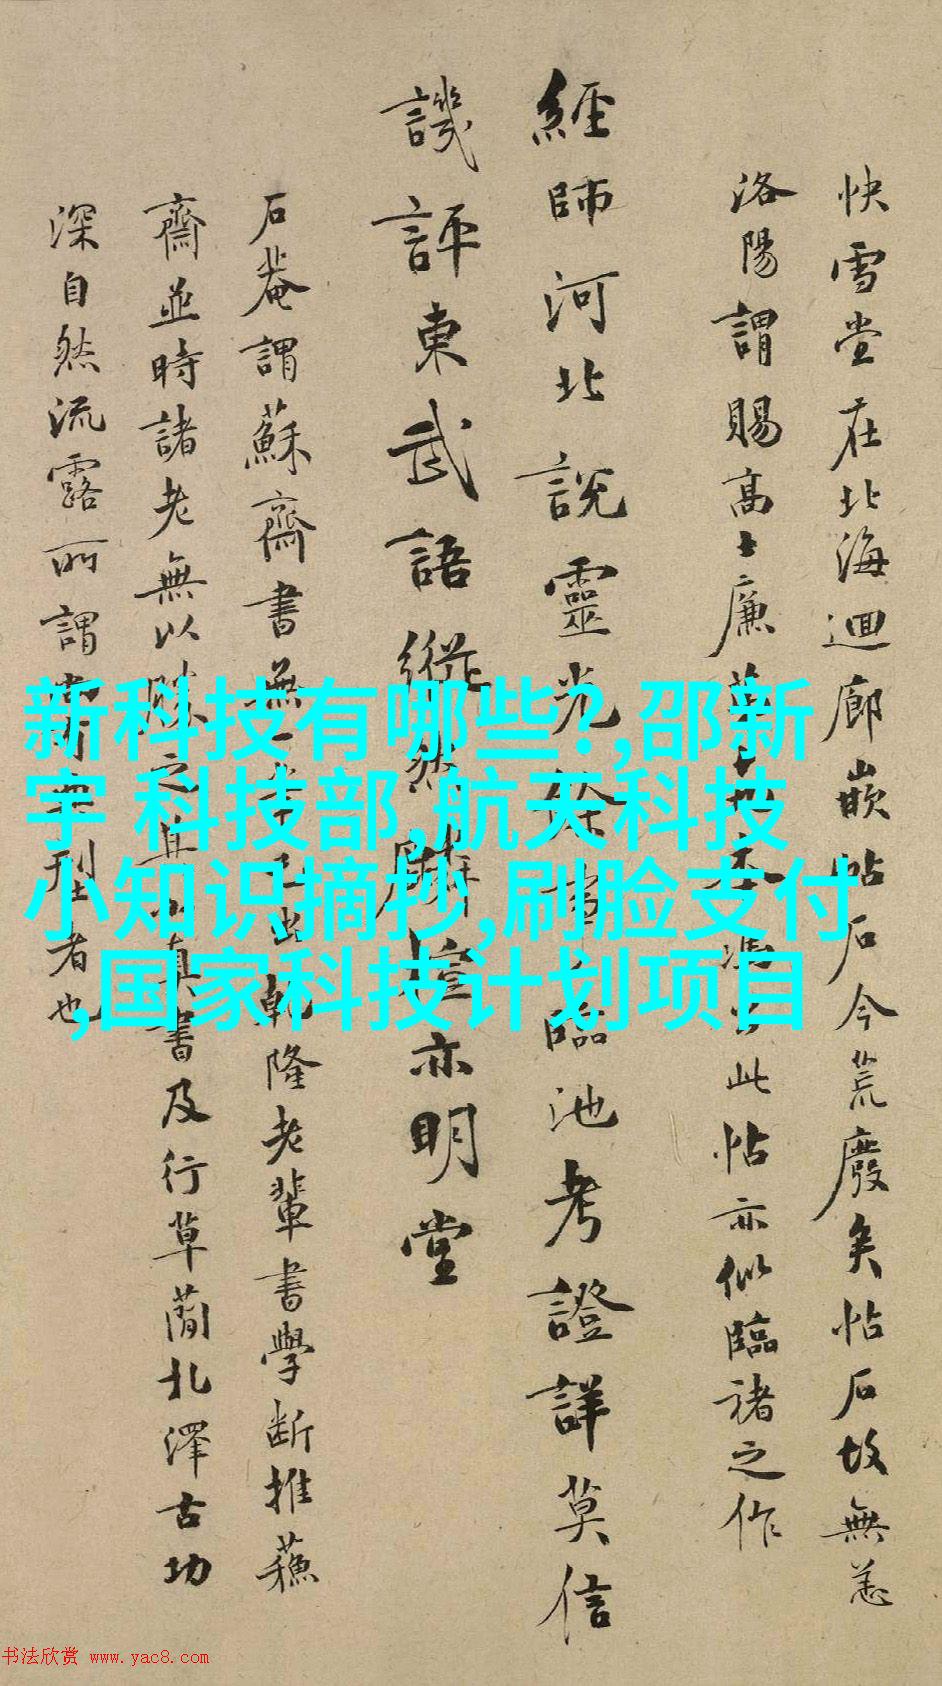 快雪堂在北海迴廊嵌帖石今荒廢矣帖石故無恙
洛陽謂賜高士廉此帖亦似臨褚之作
經師河北說靈光餘事臨池考證詳莫信
譏評東武語縱然麟楦亦明堂
石菴謂蘇齋書無一筆己出乾隆老輩書學斷推蘇
齋並時諸老無以勝之其小真書及行草簡札澤古功
深自然流露所謂型者也
新科技有哪些?,邵新
宇 科技部,航天科技
小知识摘抄,刷脸支付
,国家科技计划项目
书法欣赏 www.yac8.com